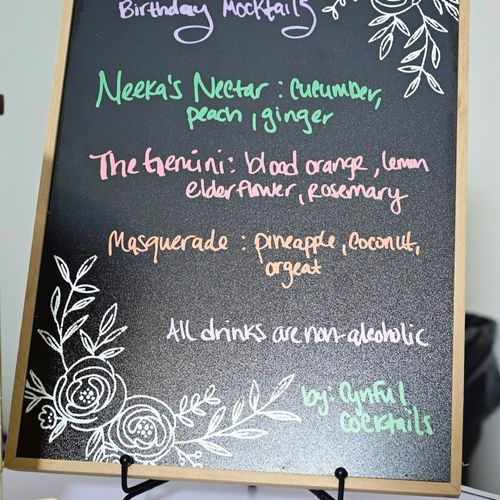 Birthday Mocktails
Neeka's Nectar : cucumber,
peach, ginger
The Gemini: blood orange, lemon
elderflower, Rosemary
Masquerade : pineapple, coconut,
orgeat
All drinks are non-alcoholic
by: Cynful
cocktails